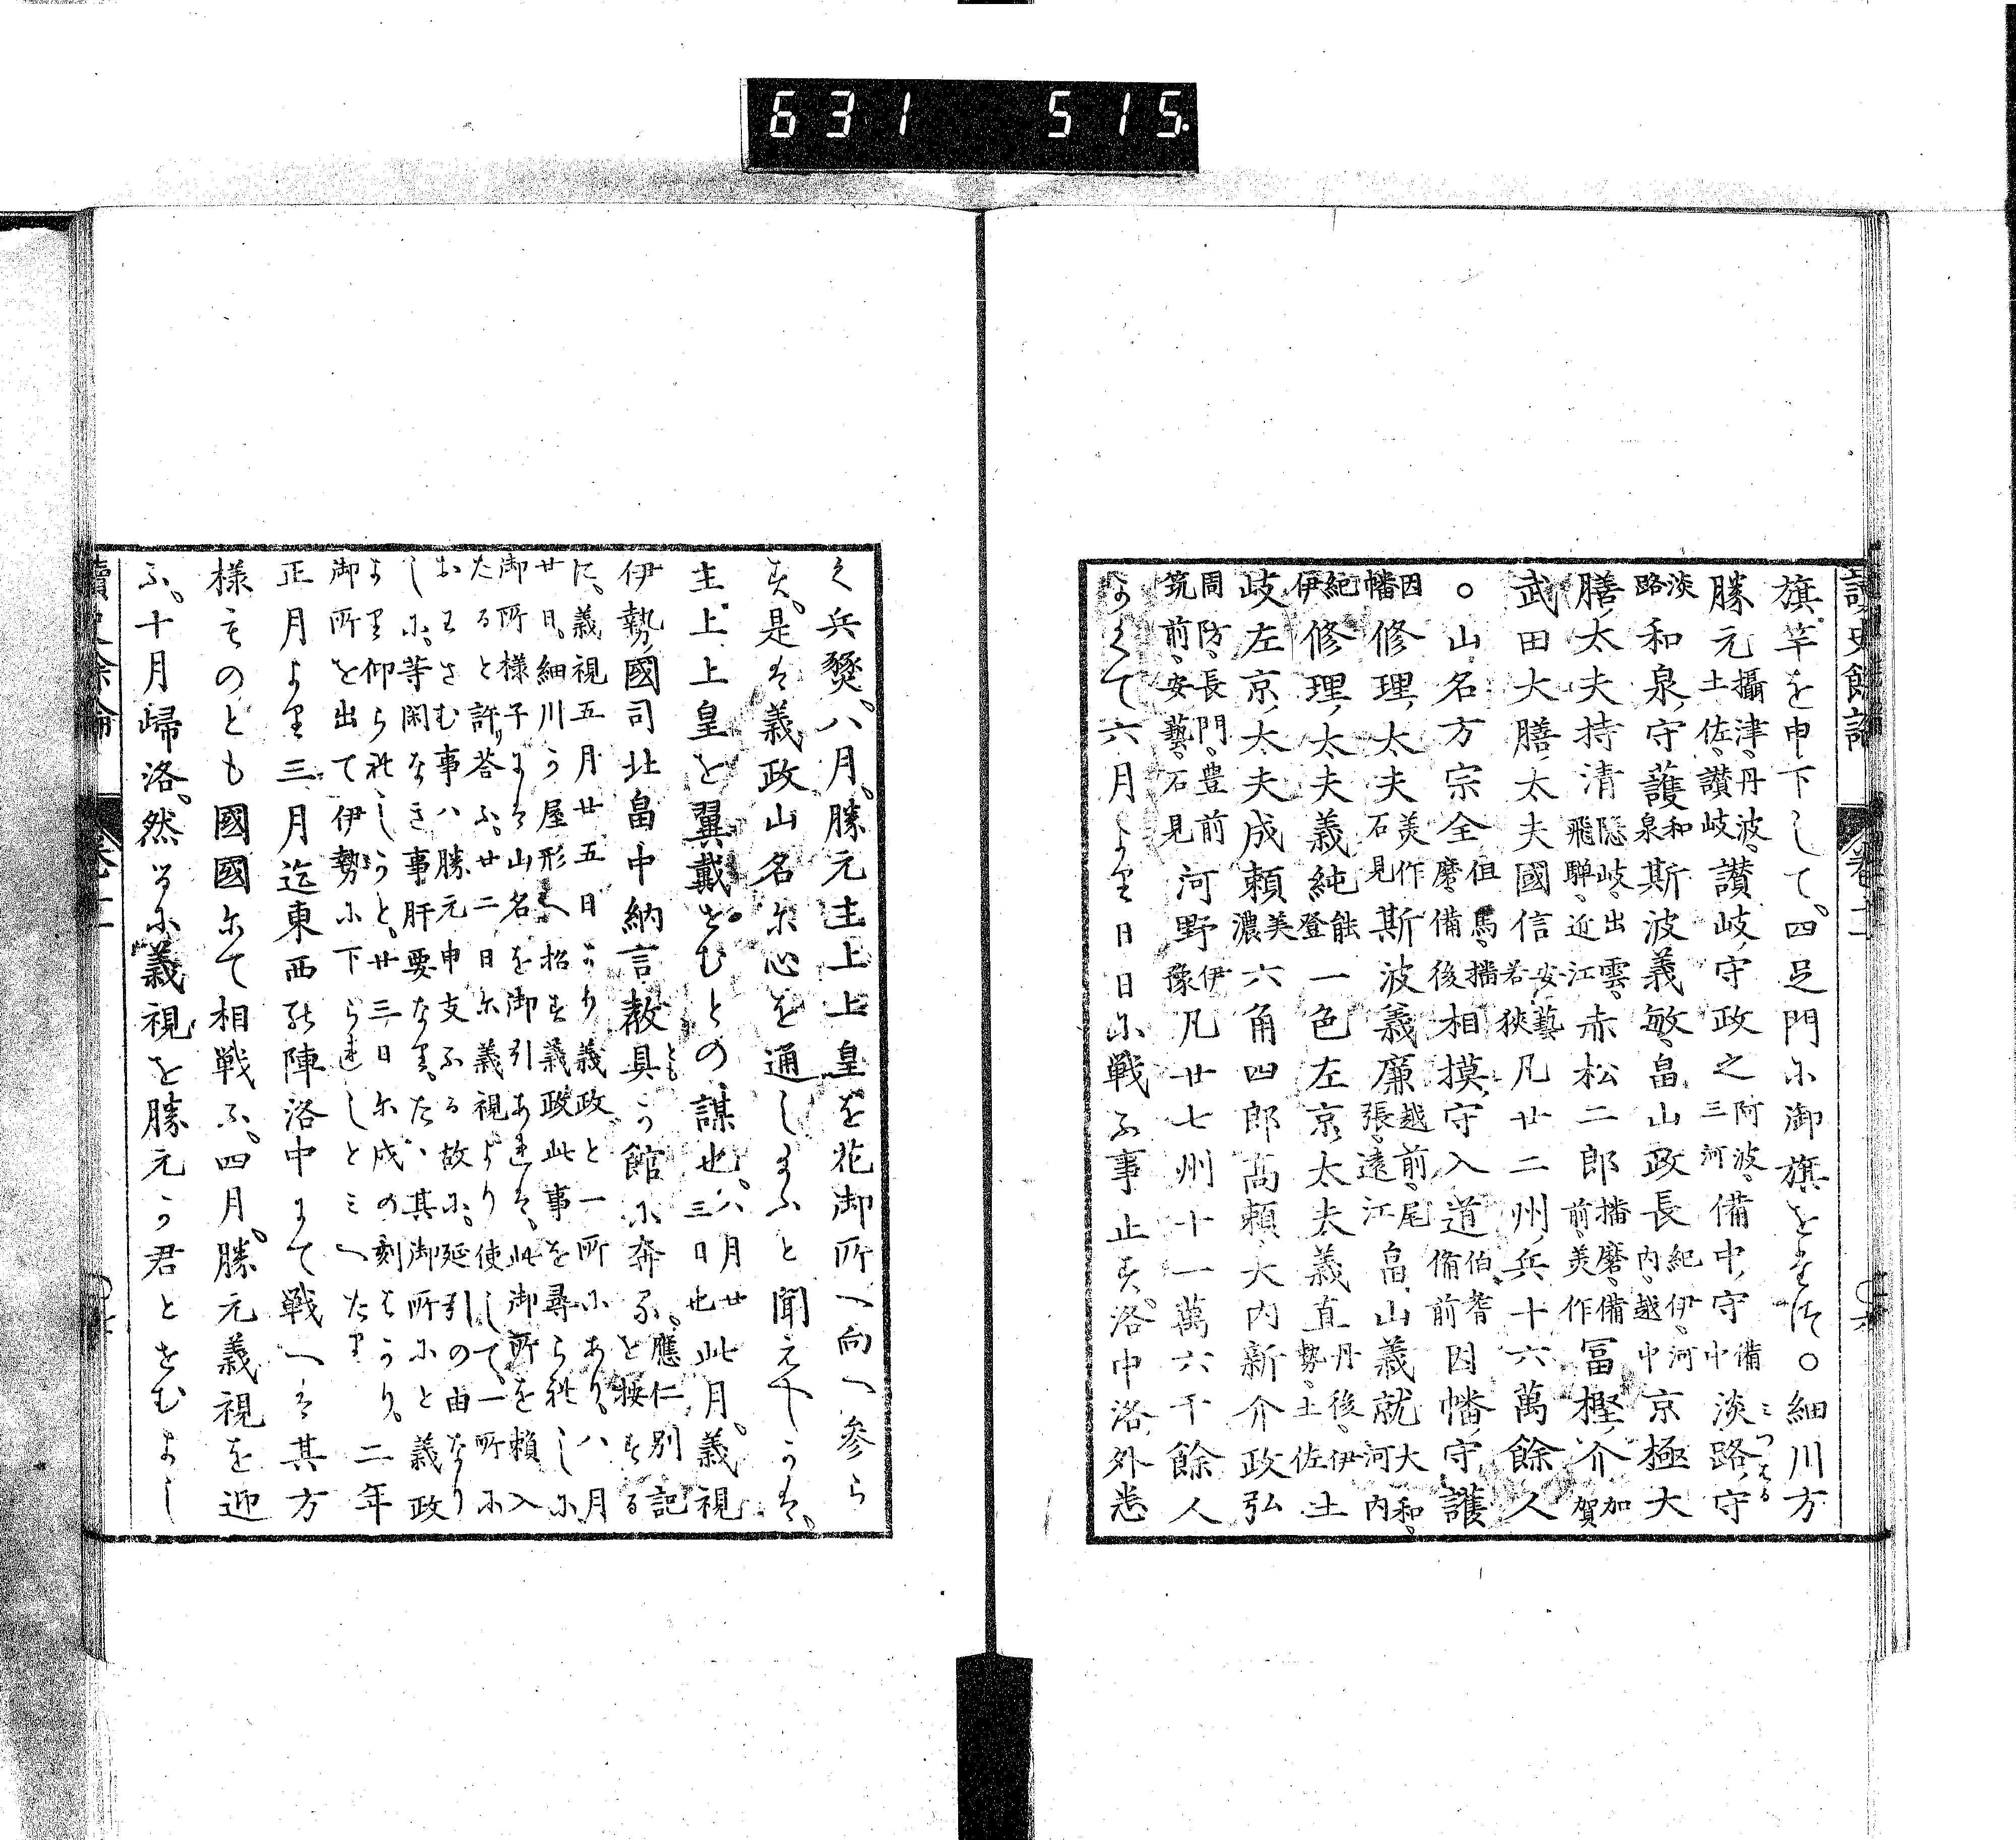 631 515.
讀史餘論 卷十二
旗竿を申下して。四足門に御旗をたつ。○細川方
勝元攝津、丹波。土佐、讃岐 讃岐守政之阿波、三河 備中守備中 淡路守
淡路 和泉守護和泉 斯波義敏、畠山政長紀伊、河内、越中 京極大
膳太夫持清隠岐、出雲、飛騨、近江 赤松二郎播磨、備前、美作 冨樫介加賀
武田大膳太夫國信安藝、若狹 凡廿二州、兵十六萬餘人
○山名方宗全但馬、播磨、備後 相摸守入道伯耆、備前 因幡守護
因幡 修理太夫美作、石見 斯波義廉越前、尾張、遠江 畠山義就大和、河内
紀伊 修理太夫義純能登 一色左京太夫義直丹後、伊勢、土佐 土
岐左京太夫成頼美濃 六角四郎高頼、大内新介政弘
周防、長門、豊前、筑前、安藝、石見 河野伊豫 凡廿七州十一萬六千餘人
なくて六月より日日に戰ふ事止す。洛中洛外悉
く兵燹。八月。勝元主上上皇を花御所へ向へ參ら
す。是は義政山名に心を通しまふと聞えしかは。
主上上皇と翼戴せむとの謀也。八月廿三日也 此月。義視
伊勢國司北畠中納言教具とものか館に奔る應仁別記を按する
に。義視五月廿五日より義政と一所にあり。八月
廿日。細川か屋形へ招き義政此事を尋られしに
御所様子よく山名を御引あれは。此御所を頼入
たると許り答ふ。廿二日に義視より使して。一所に
おはさむ事ハ勝元申支ふる故に。延引の由なり
しに。等閑なき事肝要なり。たゝ其御所にと義政
より仰られしかと。廿三日に戌の刻はかり。
御所を出て伊勢に下られしとミへたり 二年
正月より三月迄東西の陣洛中にて戰へは其方
様そのとも國國にて相戰ふ。四月。勝元義視を迎
ふ。十月歸洛。然るに義視を勝元か君とせむよし
讀史餘論 卷十二